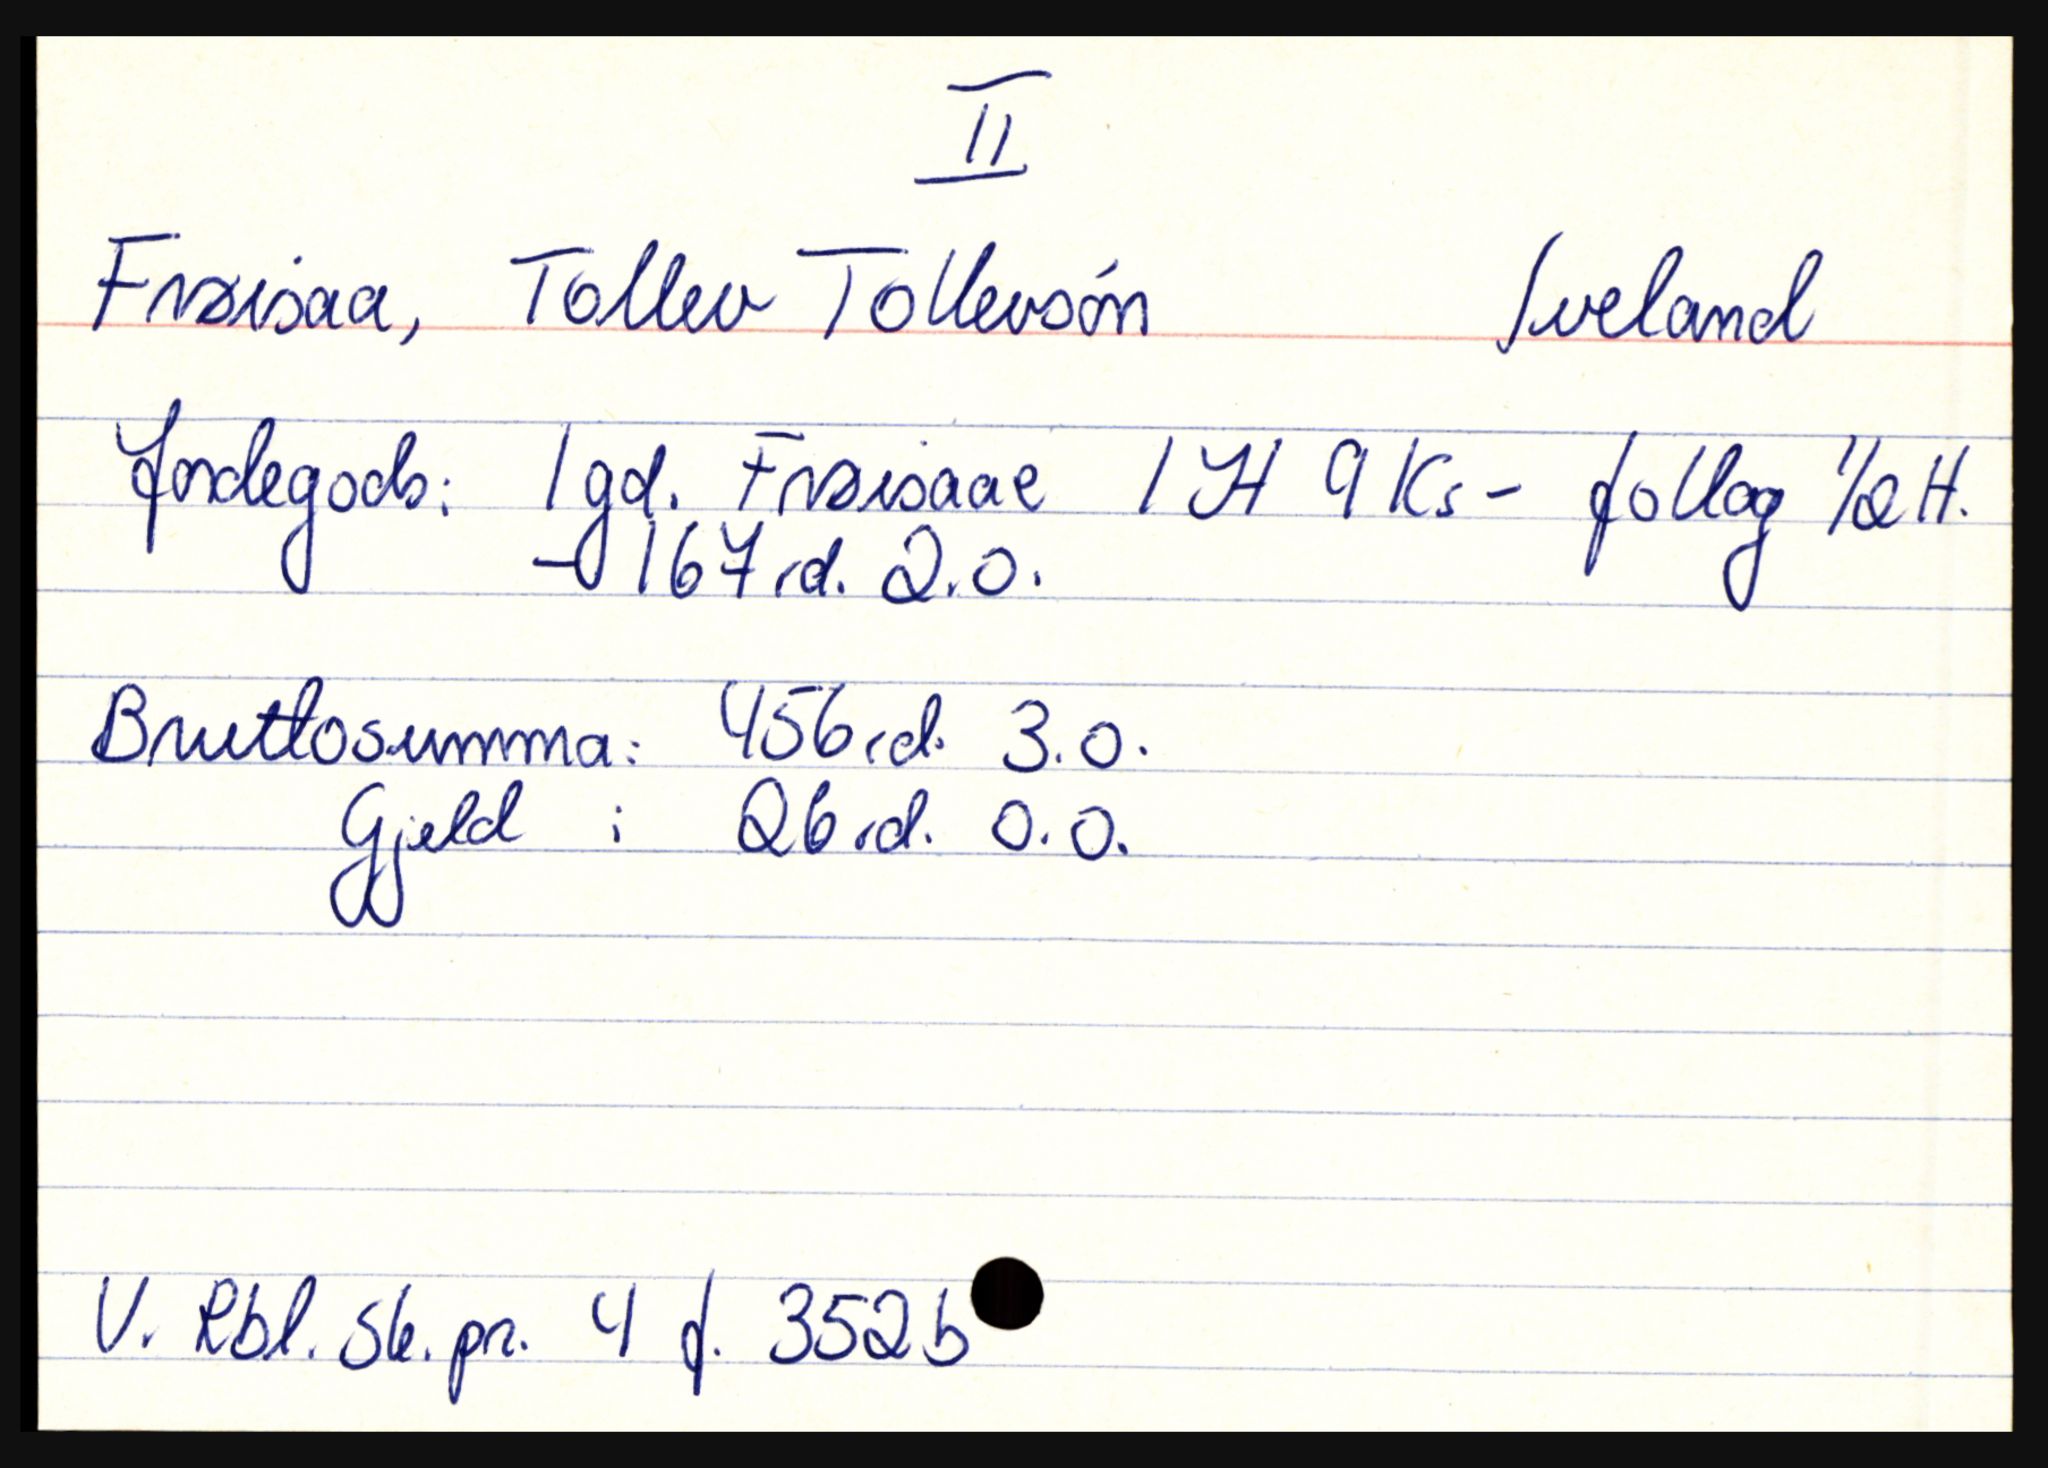 II
Frøisaa, Tollev Tollevsón Iveland
Jordegods: I gd. Frøisaae 1 H 9 Ks - follag 1/2 H.
- 167 rd. 2.0.
Bruttosumma: 456 rd. 3.0.
Gjeld : 26 rd. 0.0.
V. Rbl. Sk. pr. 4 f. 352b